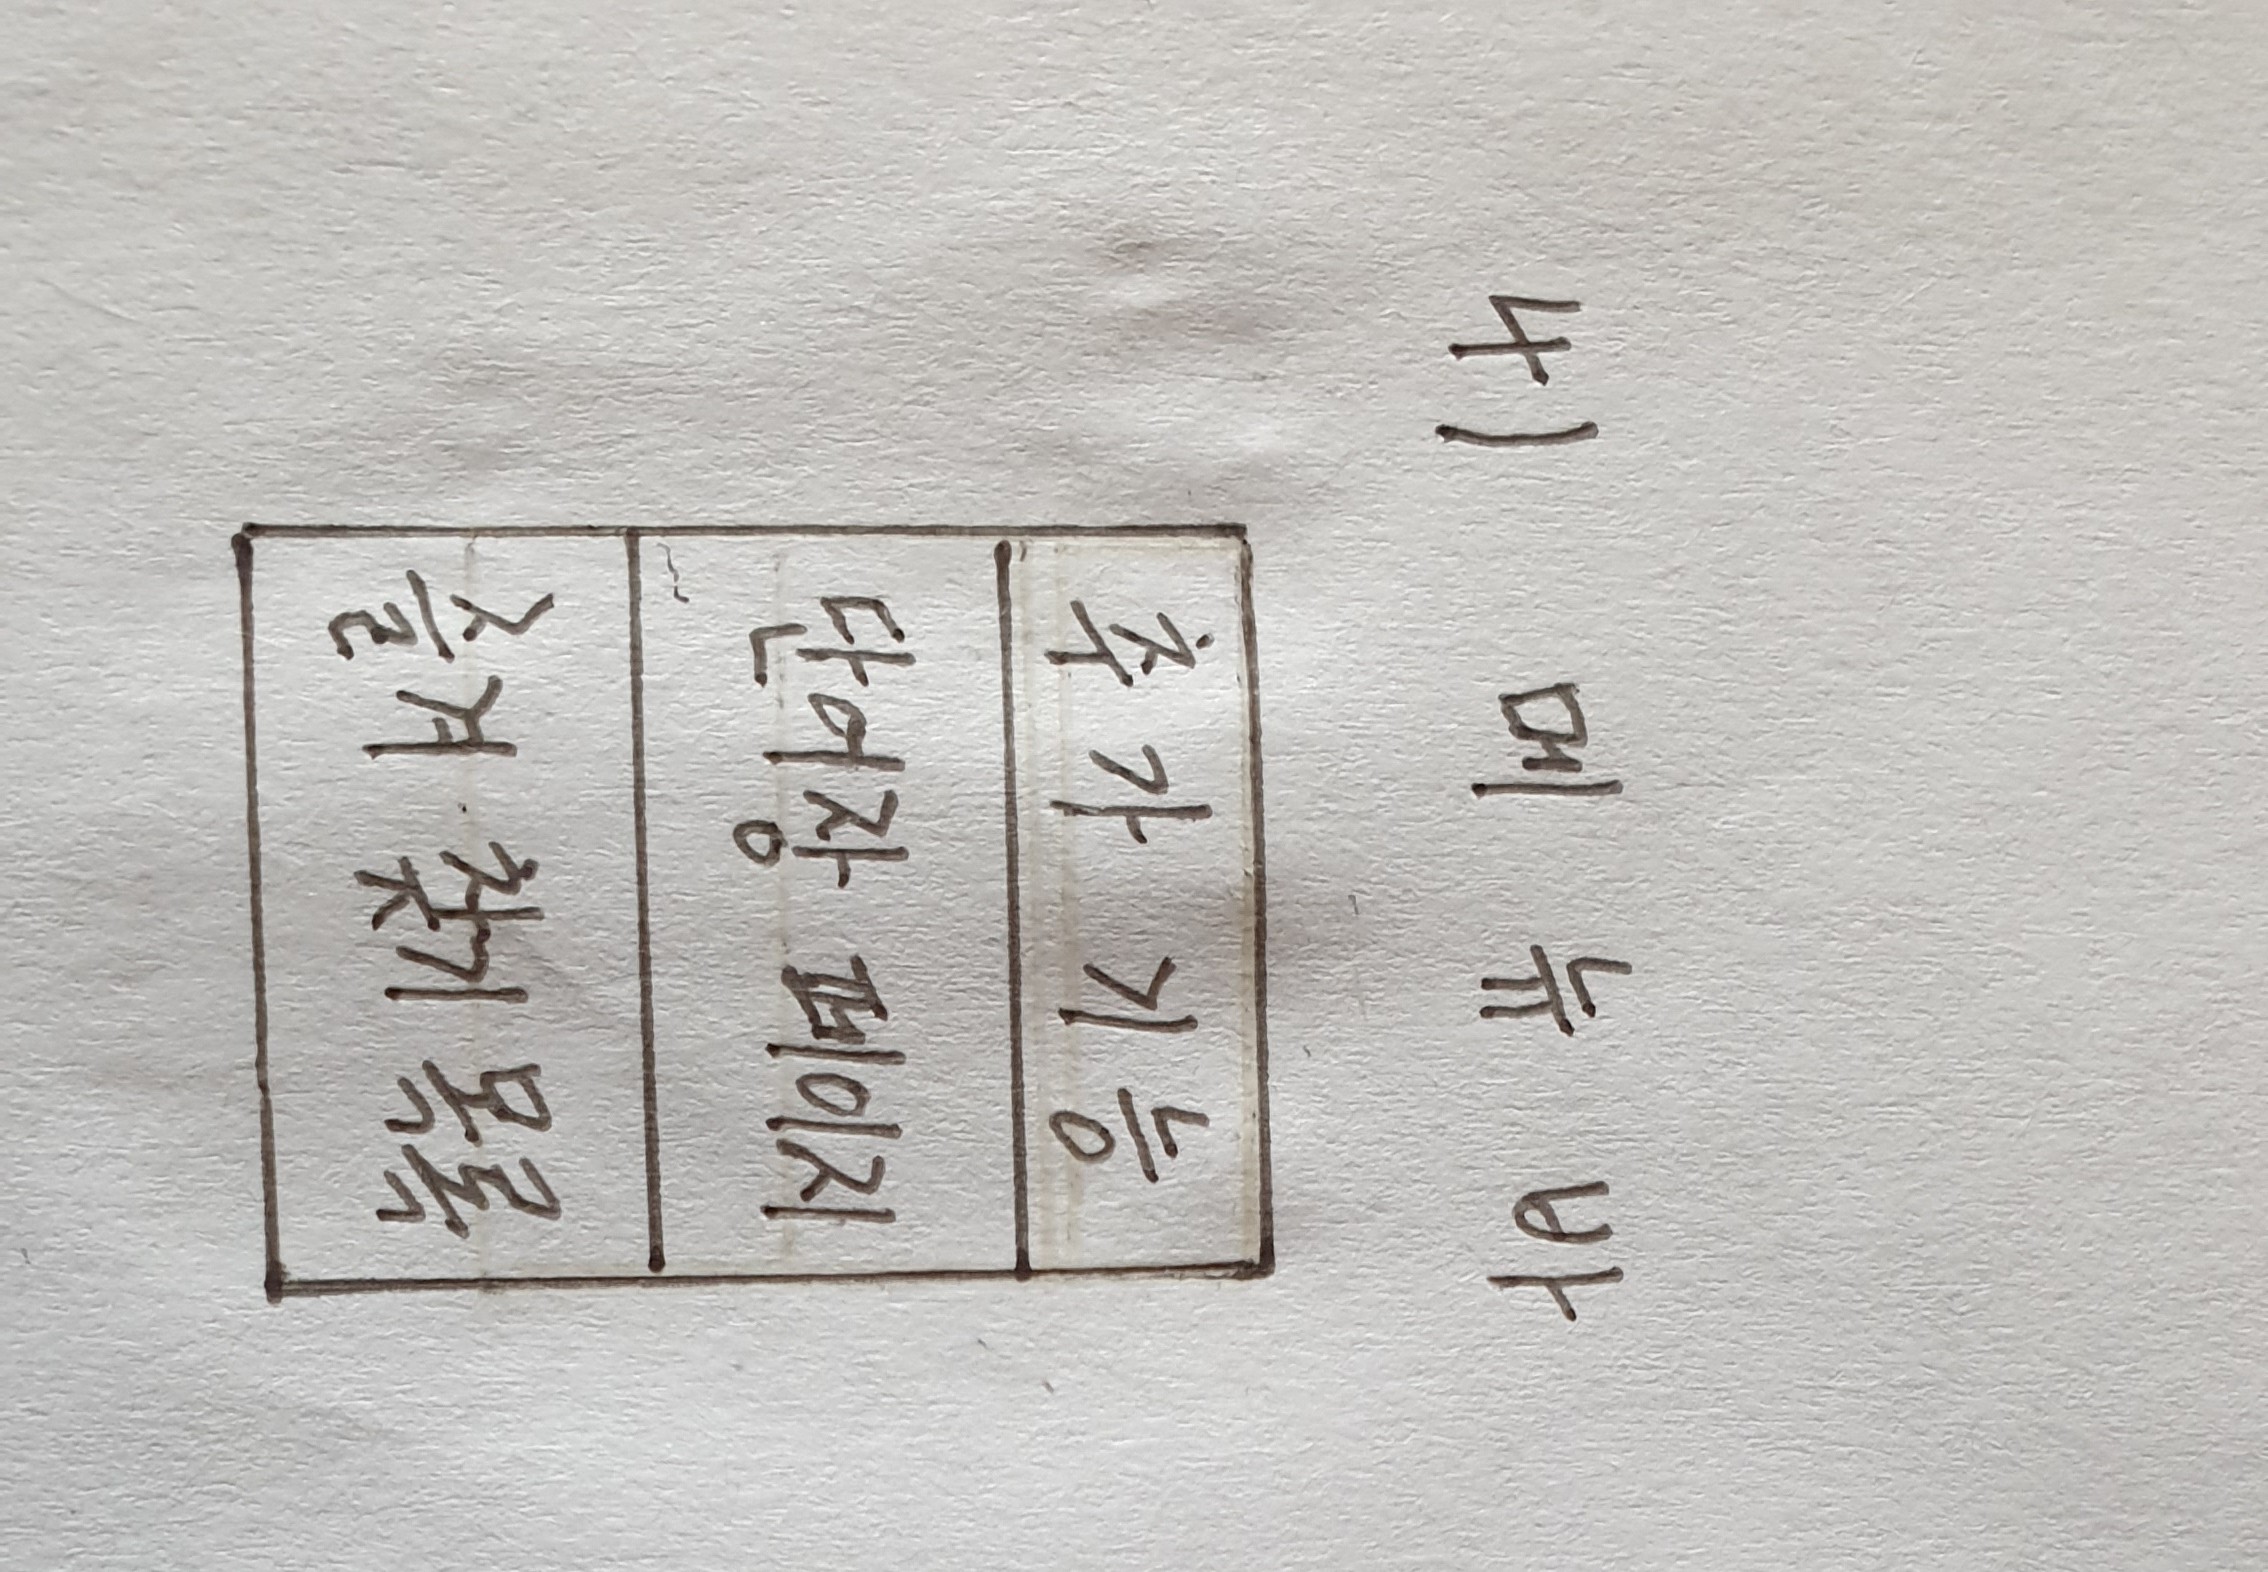 4) 메 뉴 바
추 가 기 능
단어장 페이지
즐겨 찾기 목록